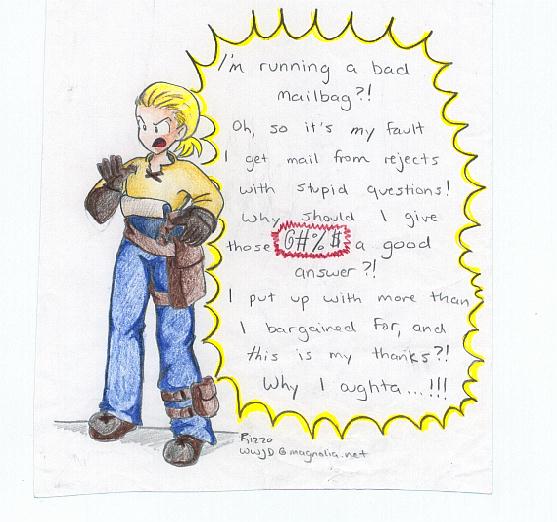 I'm running a bad
mailbag?!
Oh, so it's my fault
I get mail from rejects
with stupid questions!
Why should I give
those @#%$ a good
answer?!
I put up with more than
I bargained for, and
this is my thanks?!
Why I oughta...!!!
Rizzo
WWJD@magnolia.net